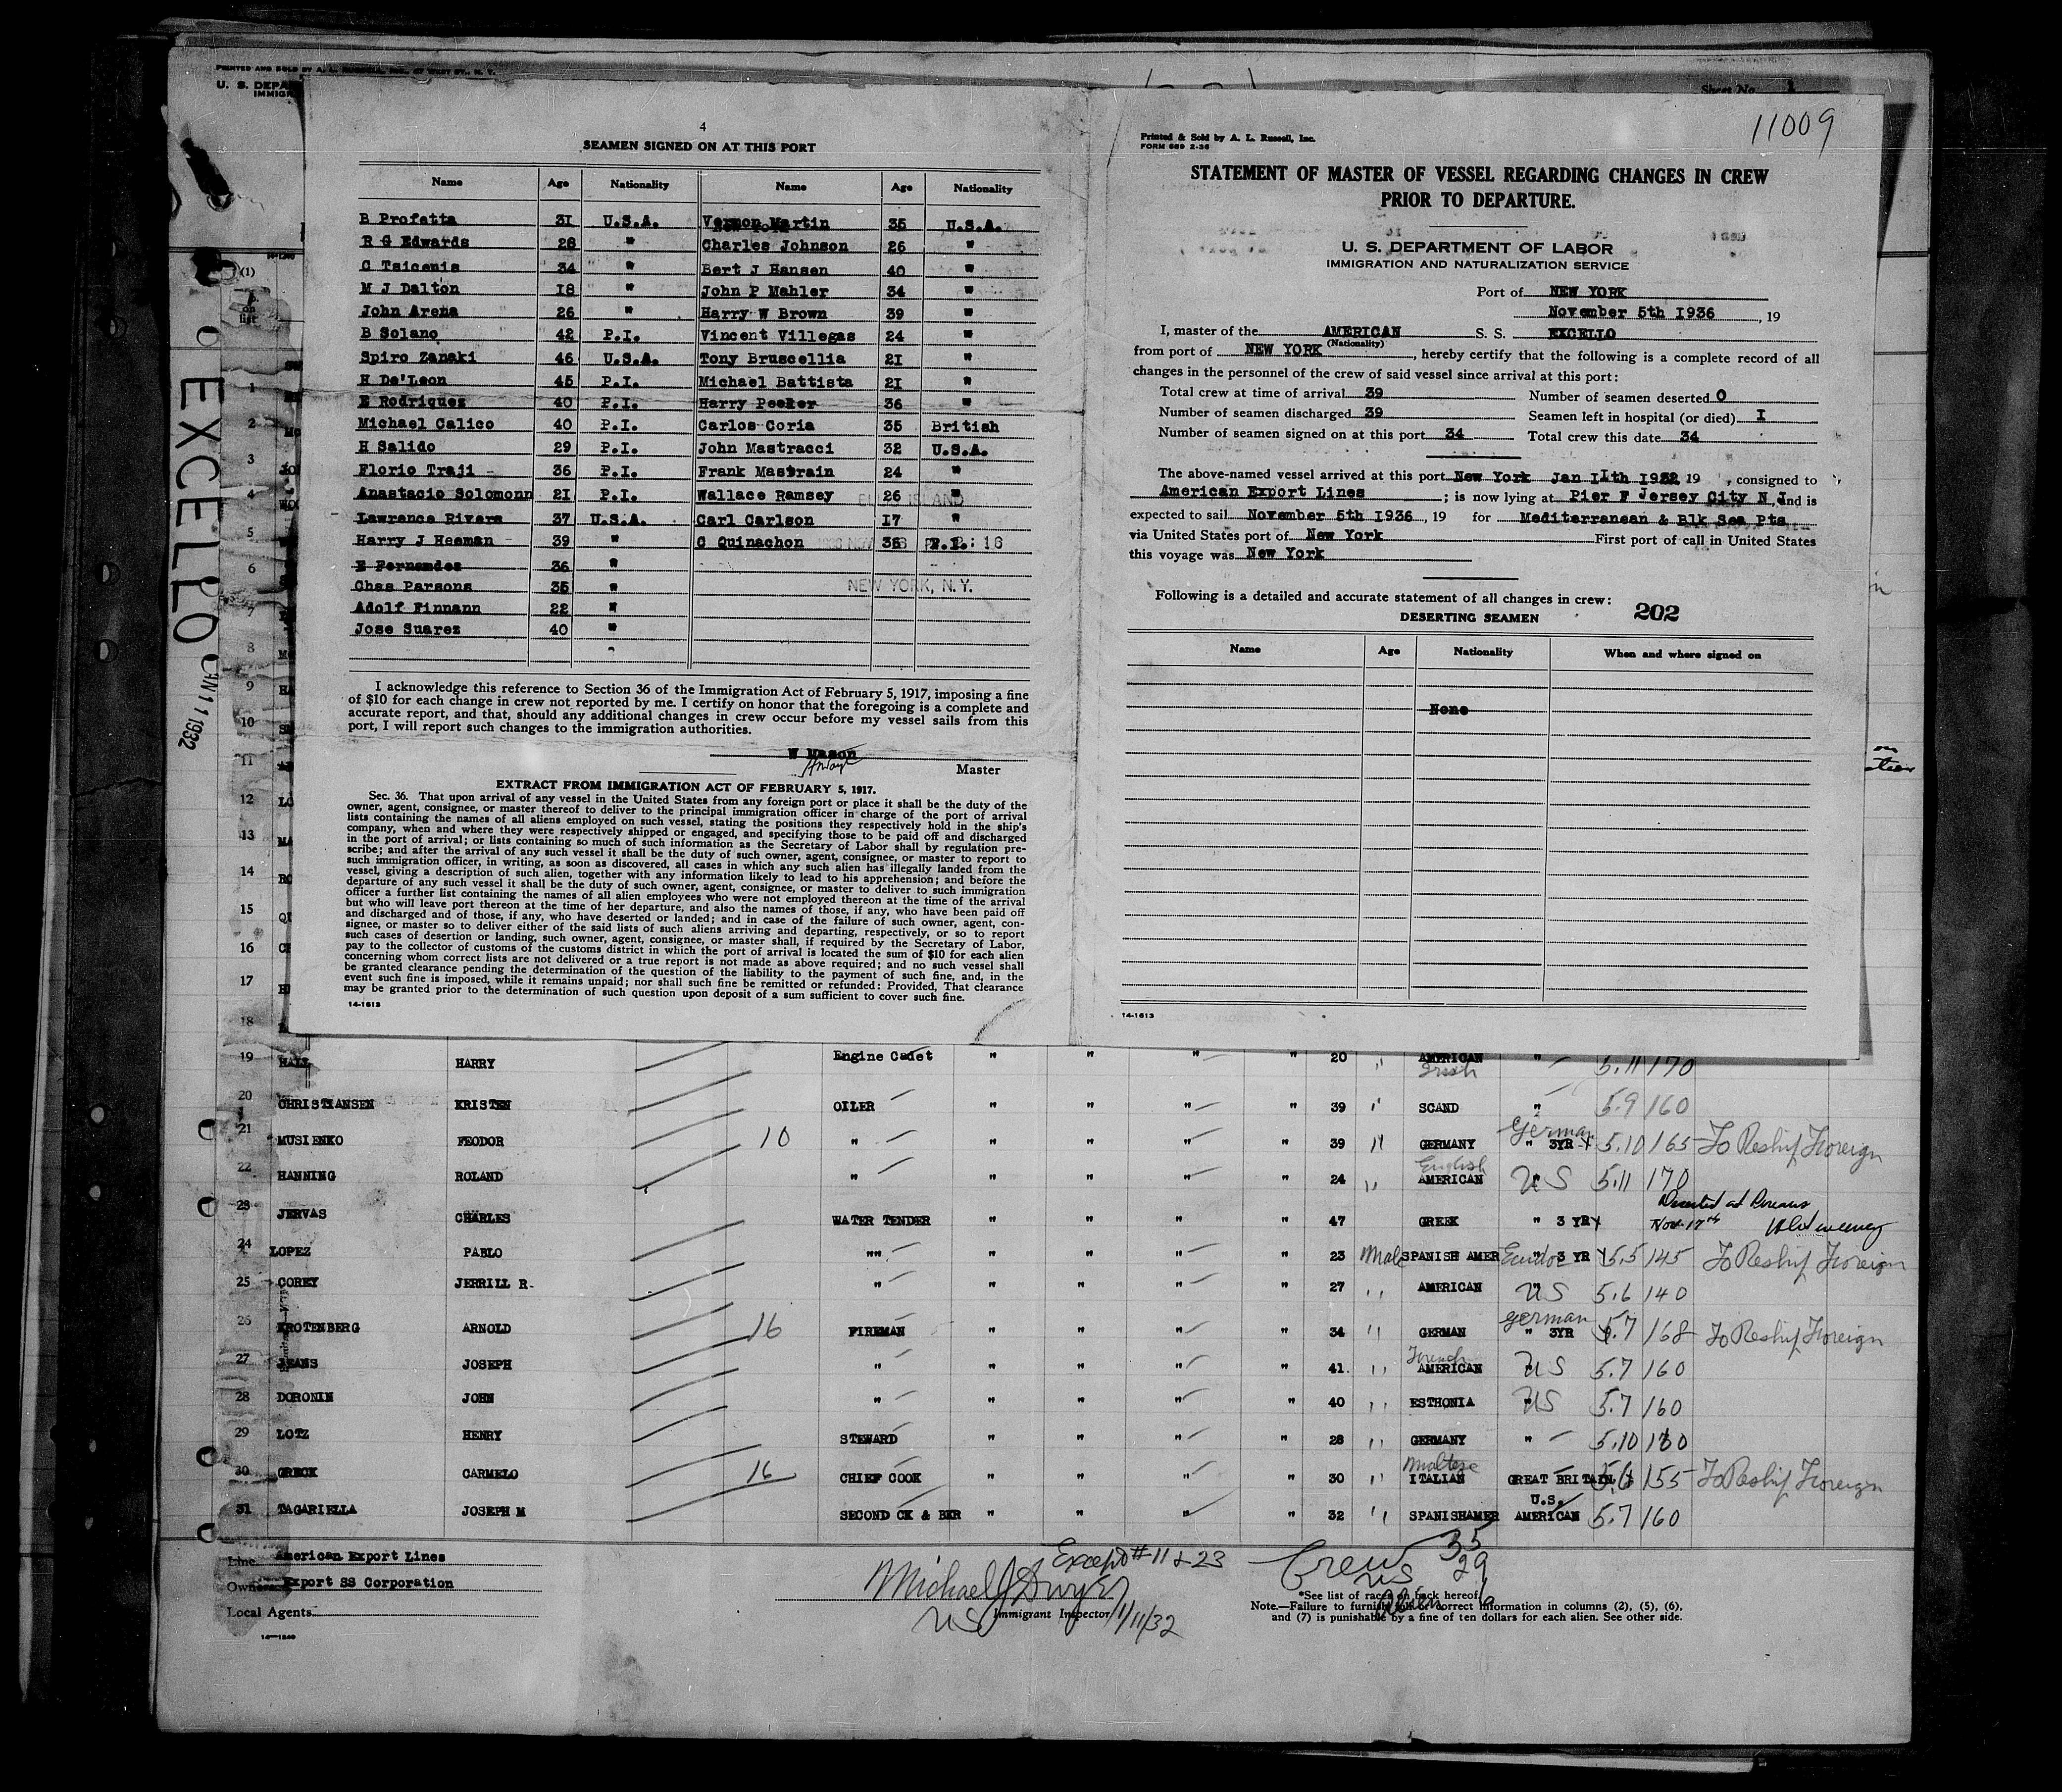 PRINTED AND SOLD BY A. L. RUSSELL, INC., 47 WEST ST., N. Y.
U. S. DEPA
IMMIG
Sheet No. 1
4
SEAMEN SIGNED ON AT THIS PORT
Name Age Nationality Name Age Nationality
B Profetta 31 U.S.A. Vernon Martin 35 U.S.A.
R G Edwards 28 " Charles Johnson 26 "
C Tsicenis 34 " Bert J Hansen 40 "
M J Dalton 18 " John P Mahler 34 "
John Arena 26 " Harry W Brown 39 "
B Solano 42 P.I. Vincent Villegas 24 "
Spiro Zanaki 46 U.S.A. Tony Bruscellia 21 "
H De'Leon 45 P.I. Michael Battista 21 "
E Rodriquez 40 P.I. Harry Peeler 36 "
Michael Calico 40 P.I. Carlos Coria 35 British
H Salido 29 P.I. John Mastracci 32 U.S.A.
Florio Traji 36 P.I. Frank Mastrain 24 "
Anastacio Solomonn 21 P.I. Wallace Ramsey 26 "
Lawrence Rivera 37 U.S.A. Carl Carlson 17 "
Harry J Heeman 39 " C Quinachon 36 P.I.
E Fernandes 36 "
Chas Parsons 35 "
NEW YORK, N.Y.
Adolf Finnann 22 "
Jose Suarez 40 "
I acknowledge this reference to Section 36 of the Immigration Act of February 5, 1917, imposing a fine
of $10 for each change in crew not reported by me. I certify on honor that the foregoing is a complete and
accurate report, and that, should any additional changes in crew occur before my vessel sails from this
port, I will report such changes to the immigration authorities.
W Mason
Master
EXTRACT FROM IMMIGRATION ACT OF FEBRUARY 5, 1917.
Sec. 36. That upon arrival of any vessel in the United States from any foreign port or place it shall be the duty of the
owner, agent, consignee, or master thereof to deliver to the principal immigration officer in charge of the port of arrival
lists containing the names of all aliens employed on such vessel, stating the positions they respectively hold in the ship's
company, when and where they were respectively shipped or engaged, and specifying those to be paid off and discharged
in the port of arrival; or lists containing so much of such information as the Secretary of Labor shall by regulation pre-
scribe; and after the arrival of any such vessel it shall be the duty of such owner, agent, consignee, or master to report to
such immigration officer, in writing, as soon as discovered, all cases in which any such alien has illegally landed from the
vessel, giving a description of such alien, together with any information likely to lead to his apprehension; and before the
departure of any such vessel it shall be the duty of such owner, agent, consignee, or master to deliver to such immigration
officer a further list containing the names of all alien employees who were not employed thereon at the time of the arrival
but who will leave port thereon at the time of her departure, and also the names of those, if any, who have been paid off
and discharged and of those, if any, who have deserted or landed; and in case of the failure of such owner, agent, con-
signee, or master so to deliver either of the said lists of such aliens arriving and departing, respectively, or so to report
such cases of desertion or landing, such owner, agent, consignee, or master shall, if required by the Secretary of Labor,
pay to the collector of customs of the customs district in which the port of arrival is located the sum of $10 for each alien
concerning whom correct lists are not delivered or a true report is not made as above required; and no such vessel shall
be granted clearance pending the determination of the question of the liability to the payment of such fine, and, in the
event such fine is imposed, while it remains unpaid; nor shall such fine be remitted or refunded: Provided, That clearance
may be granted prior to the determination of such question upon deposit of a sum sufficient to cover such fine.
14-1613
11009
Printed & Sold by A. L. Russell, Inc.
FORM 689 2-36
STATEMENT OF MASTER OF VESSEL REGARDING CHANGES IN CREW
PRIOR TO DEPARTURE.
U. S. DEPARTMENT OF LABOR
IMMIGRATION AND NATURALIZATION SERVICE
Port of NEW YORK
November 5th 1936, 19
I, master of the AMERICAN S. S. EXCELLO
(Nationality)
from port of NEW YORK, hereby certify that the following is a complete record of all
changes in the personnel of the crew of said vessel since arrival at this port:
Total crew at time of arrival 39 Number of seamen deserted 0
Number of seamen discharged 39 Seamen left in hospital (or died) I
Number of seamen signed on at this port 34 Total crew this date 34
The above-named vessel arrived at this port New York Jan 11th 1932 19 , consigned to
American Export Lines ; is now lying at Pier F Jersey City N J and is
expected to sail November 5th 1936, 19 for Mediterranean & Blk Sea Pts
via United States port of New York First port of call in United States
this voyage was New York
Following is a detailed and accurate statement of all changes in crew:
202
DESERTING SEAMEN
Name Age Nationality When and where signed on
None
14-1613
EXCELLO
JAN 11 1932
19 HALL HARRY Engine Cadet " " " " 20 " AMERICAN Irish " 5.11 170
20 CHRISTIANSEN KRISTEN OILER " " " " 39 " SCAND " 5.9 160
21 MUSIENKO FEODOR 10 " " " " " 39 " GERMANY German " 3YR 5.10 165 To Reship Foreign
22 HANNING ROLAND " " " " " 24 " English AMERICAN US 5.11 170
23 JERVAS CHARLES WATER TENDER " " " " 47 GREEK " 3 YR Deserted at Piraeus Nov. 17th
24 LOPEZ PABLO "" " " " " 23 Male SPANISH AMER " 3 YR 5.5 145 To Reship Foreign
25 COREY JERRILL R. " " " " " 27 " AMERICAN US 5.6 140
26 KROTENBERG ARNOLD 16 FIREMAN " " " " 34 " GERMAN German " 3YR 5.7 168 To Reship Foreign
27 JEANS JOSEPH " " " " " 41. " French AMERICAN US 5.7 160
28 DORONIN JOHN " " " " " 40 " ESTHONIA US 5.7 160
29 LOTZ HENRY STEWARD " " " " 28 " GERMANY " 5.10
30 GRECK CARMELO 16 CHIEF COOK " " " " 30 " Maltese ITALIAN GREAT BRITAIN 5.6 155 To Reship Foreign
31 TAGARIELLA JOSEPH M SECOND CK & BKR " " " " 32 " SPANISHAMER U.S. AMERICAN 5.7 160
Line American Export Lines
Owners Export SS Corporation
Local Agents
14-1240
Except #11 & 23
Michael J Dwyer
US Immigrant Inspector 1/11/32
Crew 35
US 29
Alien 6
*See list of races on back hereof.
Note.—Failure to furnish full or correct information in columns (2), (5), (6),
and (7) is punishable by a fine of ten dollars for each alien. See other side.